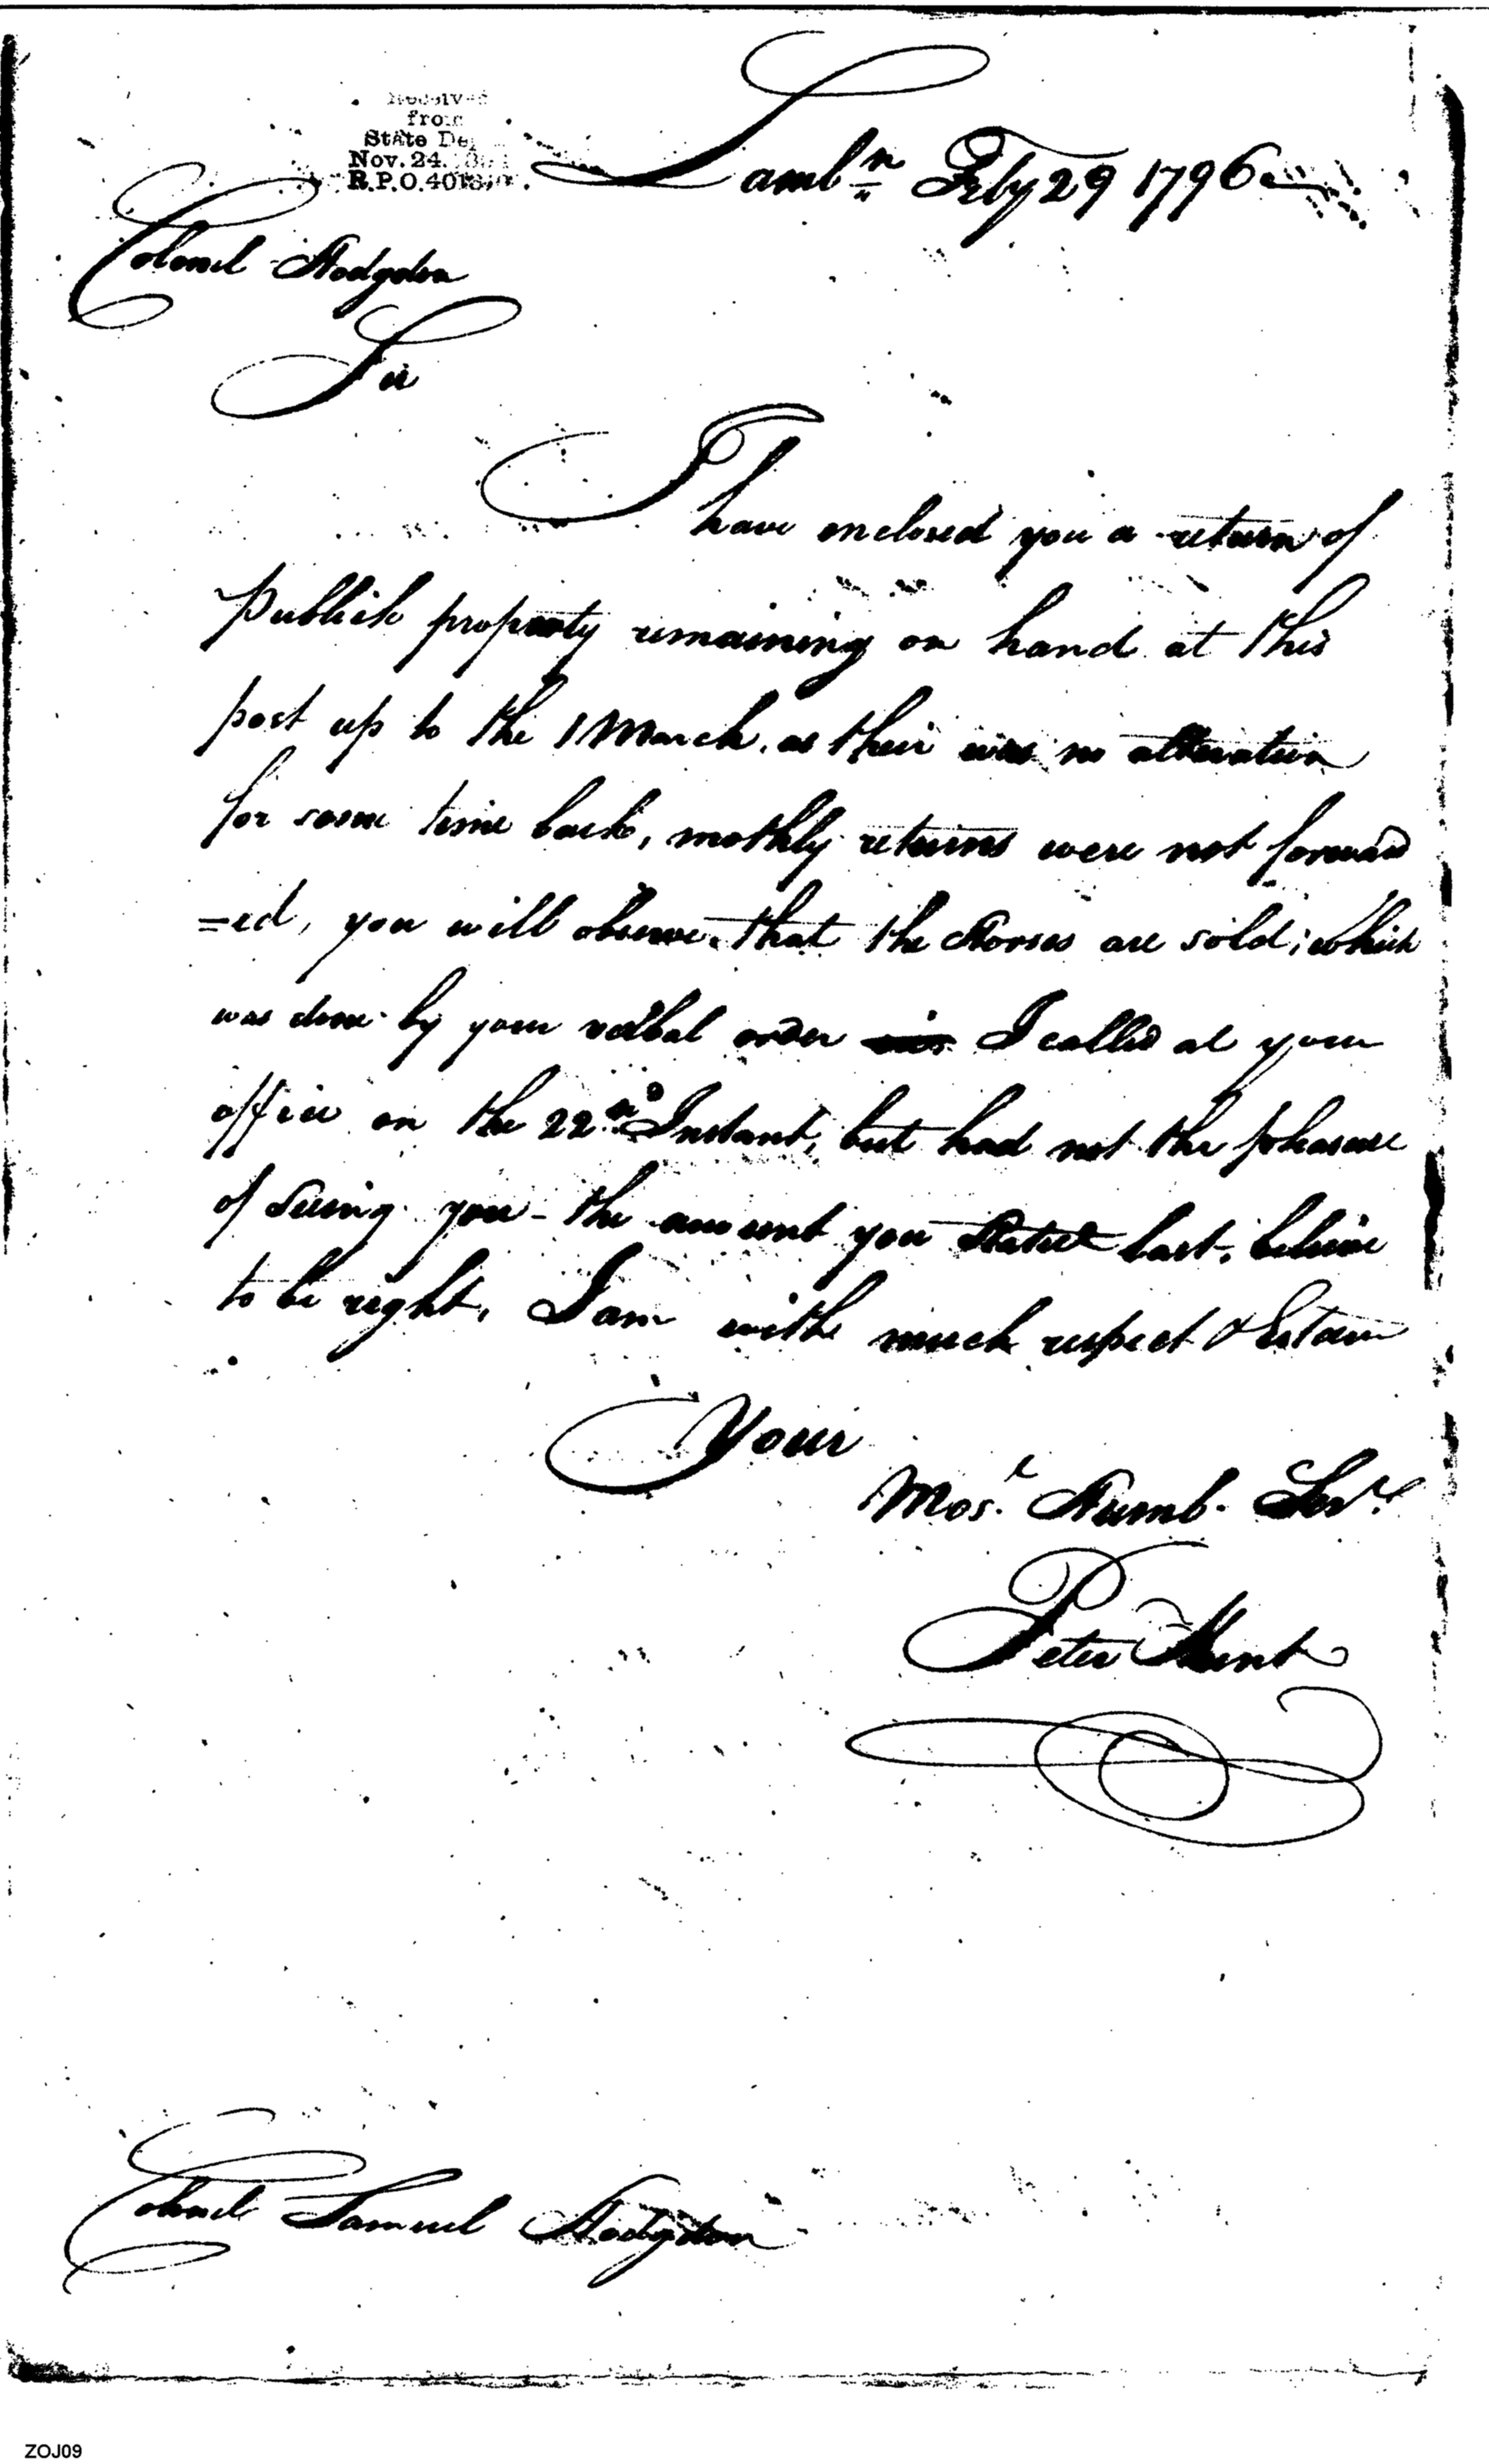 Received
from
State De
Nov. 24.
R.P.O. 401
Lambn Feby 29 1796
Colonel Hodgdon
Sir
I have enclosed you a return of
Publick property remaining on hand at this
post up to the 1 March, as their was no alteration
for some time back, mothly returns were not forward
=ed, you will observe that the Horses are sold; which
was done by your verbal order I called at your
office on the 22nd Instant, but had not the pleasure
of Seeing you - the amount you Stated last, believe
to be right, I am with much respect & Esteem
Your
Most Humb. Sert
Peter Hunt
Colonel Samuel Hodgdon
ZOJ09